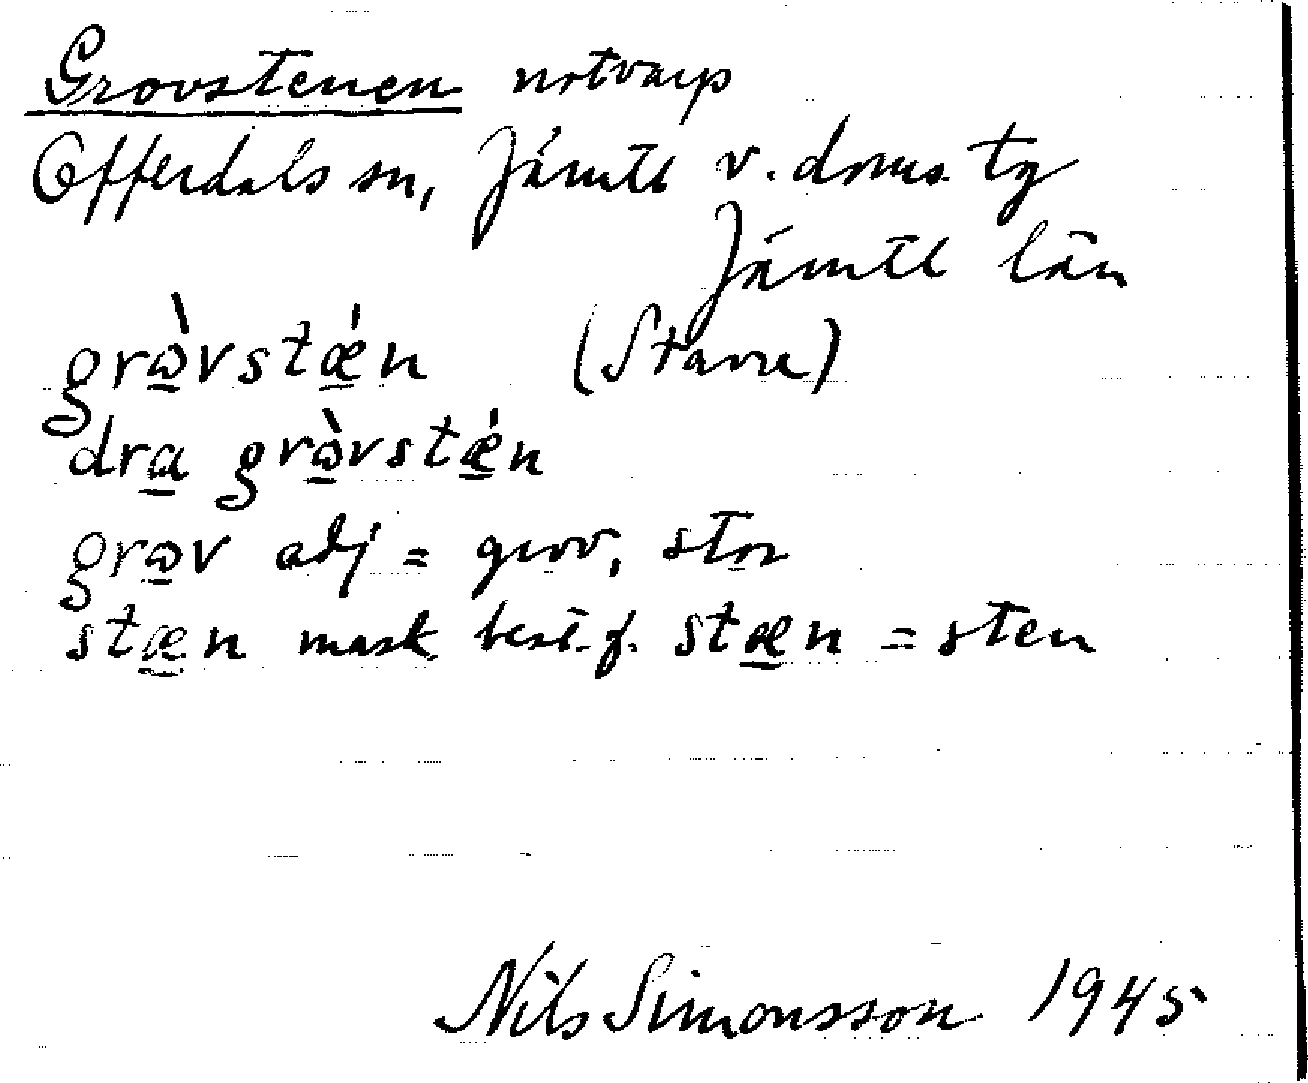 Grovstenen notvarp
Offerdals sn, Jämtl v. doms. tg
Jämtl län
grɷ̀vstǽn (Stavre)
dra grɷ̀vstǽn
grɷv adj = grov, stor
stæn mask best. f. stæn = sten
Nils Simonsson 1945